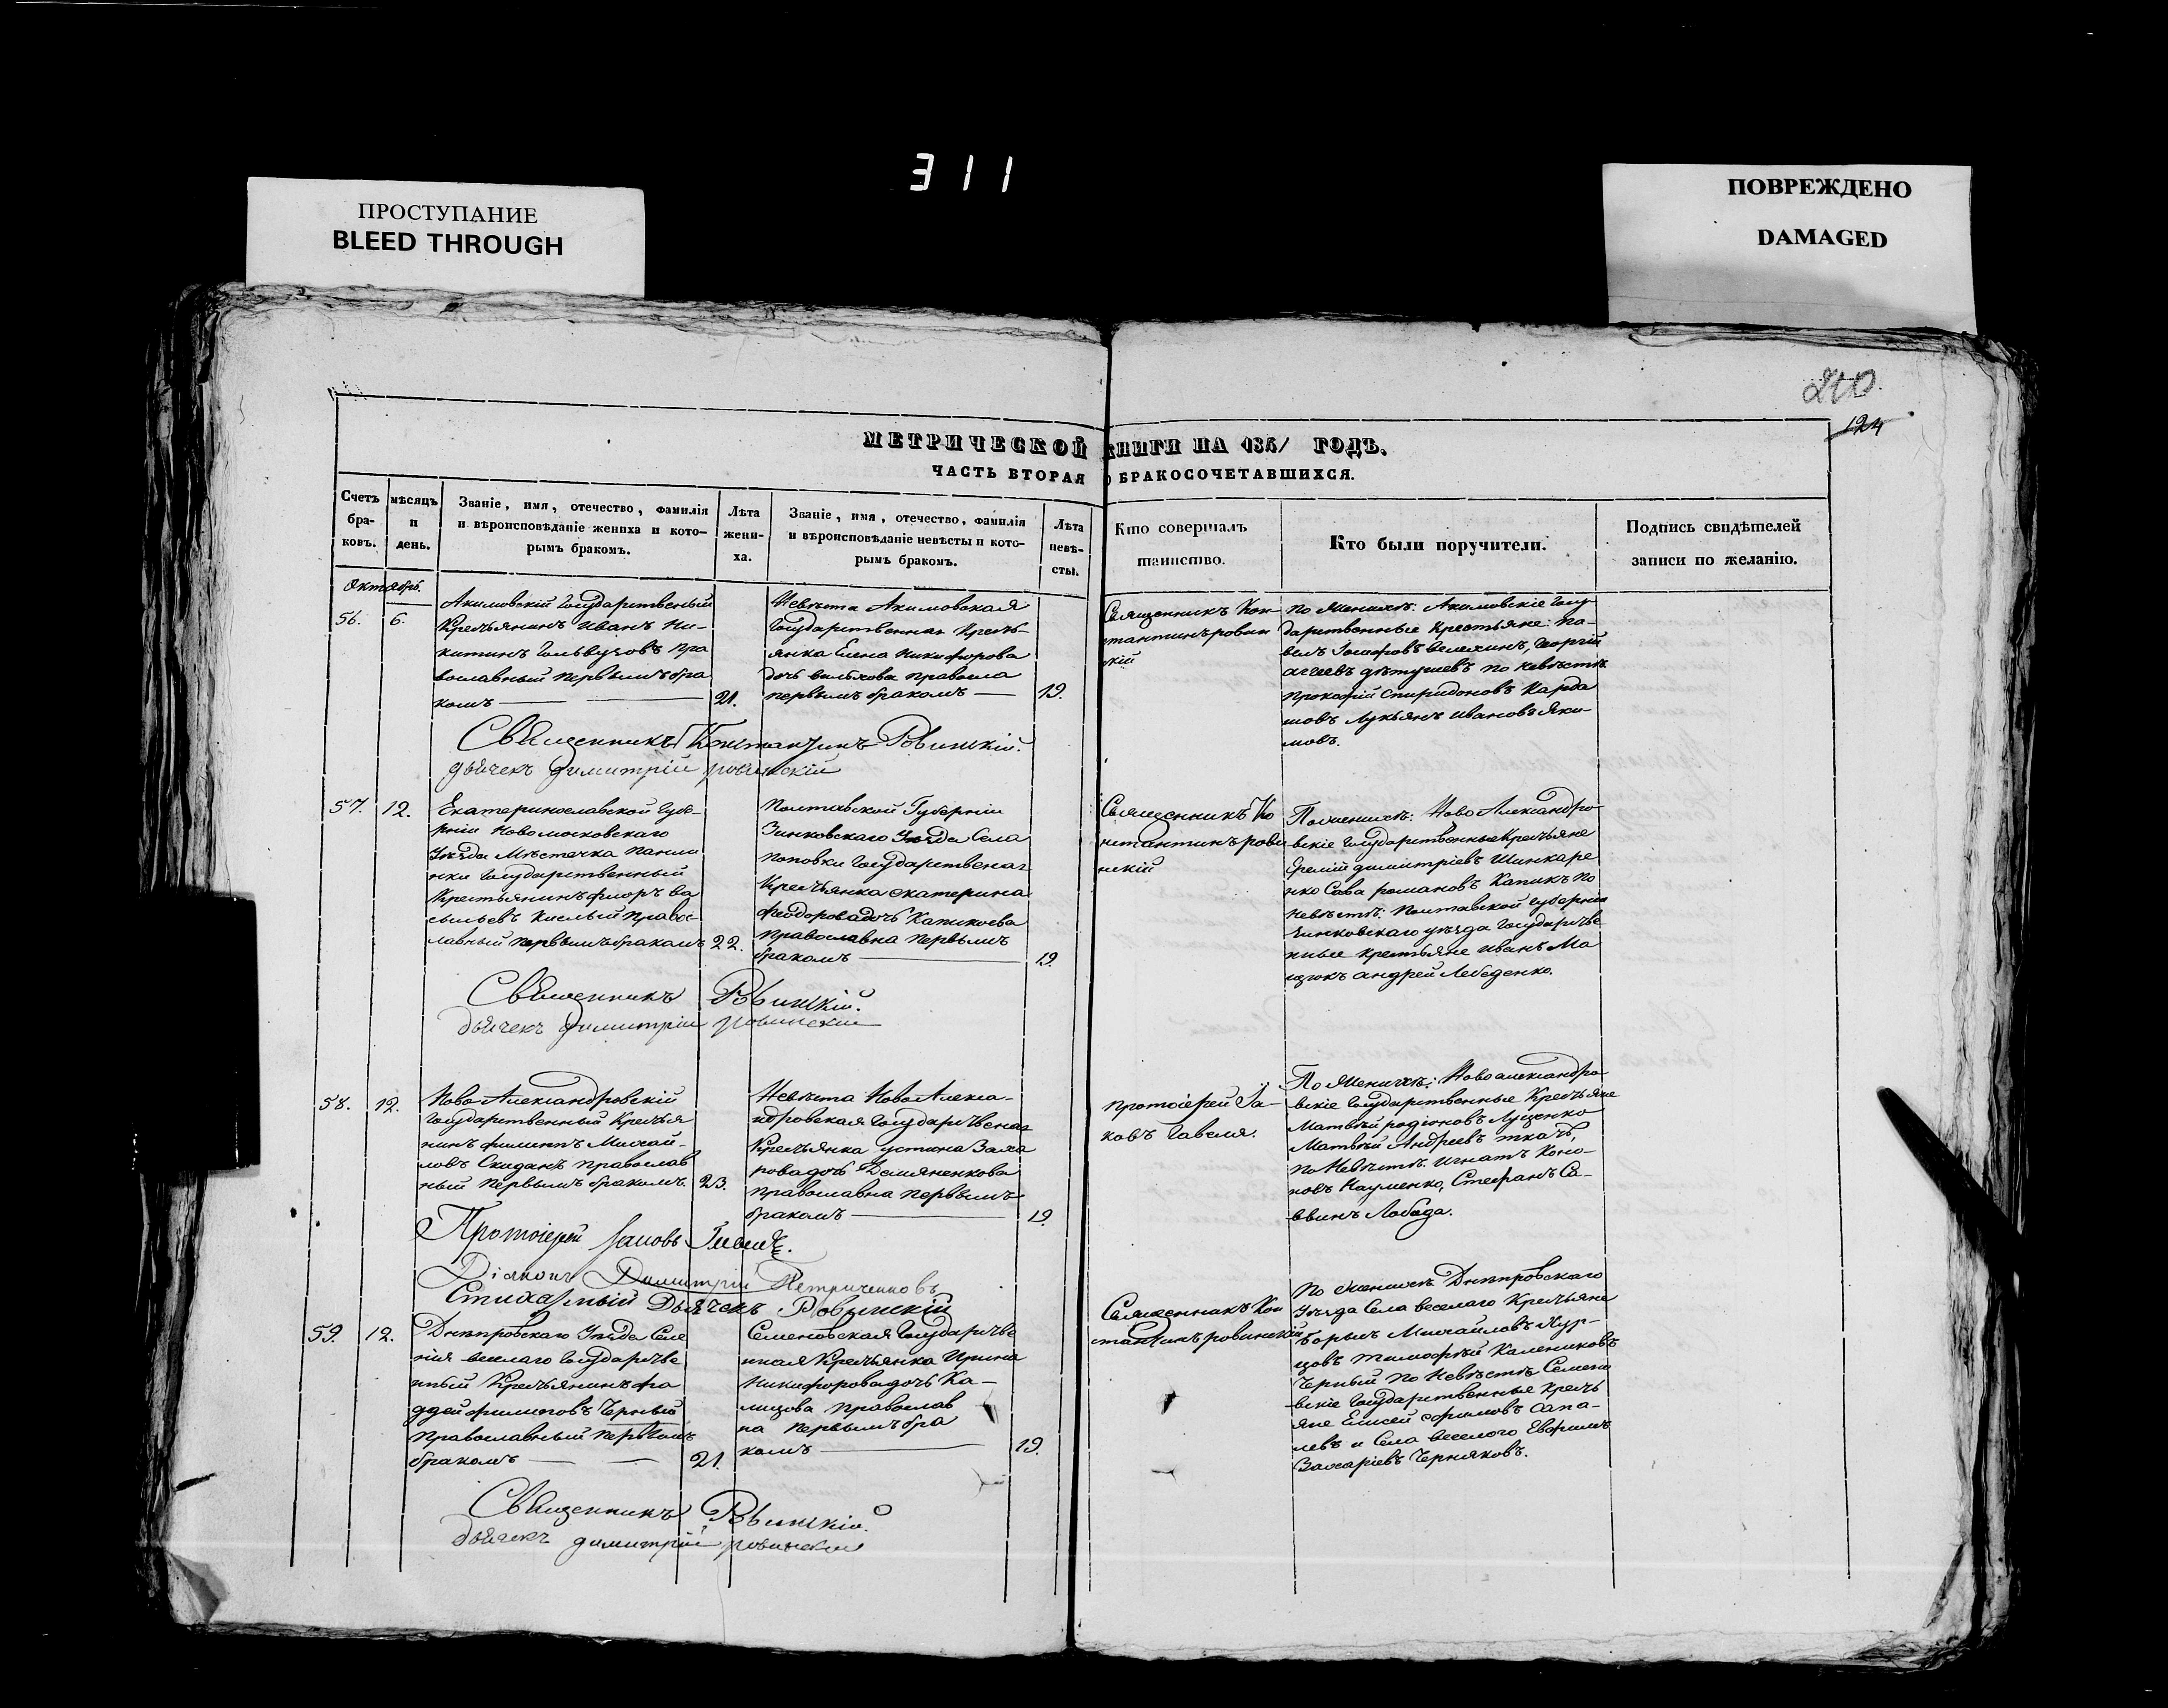 311
ПРОСТУПАНИЕ
BLEED THROUGH
ПОВРЕЖДЕНО
DAMAGED
210.
124
МЕТРИЧЕСКОЙ КНИГИ НА 1851 ГОДЪ.
ЧАСТЬ ВТОРАЯ О БРАКОСОЧЕТАВШИХСЯ.
Счетъ бра-
ковъ.
мѣсяцъ
и
день.
Званіе, имя, отечество, фамилія
и вѣроисповѣданіе жениха и кото-
рымъ бракомъ.
Лѣта
жени-
ха.
Званіе, имя, отечество, фамилія
и вѣроисповѣданіе невѣсты и кото-
рымъ бракомъ.
Лѣта
невѣ-
сты.
Кто совершалъ
таинство.
Кто были поручители.
Подпись свидѣтелей
записи по желанію.
Октябрь.
56.
6.
Акимовскій Государственный
Крестьянинъ Иванъ Ни-
китинъ пра
вославный первымъ бра
комъ
21.
Невѣста Акимовская
Государственная Кресть-
янка Елена Никифорова
дочь правосла
первымъ бракомъ
19.
Священникъ Кон
стантинъ ровин
скій
По Женихѣ: Акимовскіе Госу
дарственные Крестьяне: Па-
велъ Георгій
по невѣстѣ
Прокофій Спиридоновъ Карда
шовъ Лукьянъ Ивановъ Яки-
мовъ.
Священникъ Константинъ Ровинскій.
дьячекъ Димитрій ровинскій
57.
12.
Екатеринославской Губе-
рніи Новомосковскаго
Уѣзда Мѣстечка
Государственный
Крестьянинъ флоръ ва
сильевъ Кислый Правос
лавный первымъ бракомъ
22.
Полтавской Губерніи
Зинковскаго Уѣзда Села
Поповки Государственная
Крестьянка екатерина
Феодорова дочь
Православна первымъ
бракомъ
19.
Священникъ Ко
нстантинъ рови
нскій
По женихѣ: Ново Александро
вскіе Государственные Крестьяне
Еремій димитріевъ Шинкаре
нко Сава романовъ Капикъ по
невѣстѣ: Полтавской губерніи
Зинковскаго уѣзда Государстве
нные крестьяне иванъ Ма
андрей Лебеденко.
Священникъ Ровинскій.
дьячекъ Димитрій ровинскій
58.
12.
Ново Александровскій
Государственный Крестья
нинъ филиппъ Михай-
ловъ Скиданъ православ
ный первымъ бракомъ
23.
Невѣста Ново Алекса-
ндровская Государственая
Крестьянка устина Заха
рова дочь Демяненкова
православна первымъ
бракомъ
19.
протоіерей Іа-
ковъ Гавеля.
По Женихѣ: Новоалександро
вскіе Государственные Крестьяне
Матвѣй родіоновъ Луценко
Матвѣй Андреевъ ткачъ,
по Невѣстѣ. Игнатъ Коно-
новъ Науменко, Стефанъ Са-
ввинъ Лобода.
Протоіерей Іаковъ
Діаконъ Димитрій Петриченковъ
Стихарный Дьячекъ Ровинскій
59.
12.
Днѣпровскаго Уѣзда Селе
нія веселаго Государстве
нный Крестьянинъ фа
ддей филиповъ Черный
православный первымъ
бракомъ
21.
Семеновская Государстве
нная Крестьянка Ирина
Никифорова дочь Ка-
православ
на первымъ бра
комъ
19.
Священникъ Кон
стантинъ ровинскій
По женихѣ Днѣпровскаго
Уѣзда Села веселаго Крестьяне
Михайловъ Кур-
цовъ тимофѣй Калениковъ
Черный по Невѣстѣ Семено
вскіе Государственные Кресть
яне Елисей ефимовъ Сапа-
левъ и Села веселого Евфимъ
Захаріевъ Черняковъ.
Священникъ Ровинскій.
дьячекъ димитрій ровинскій